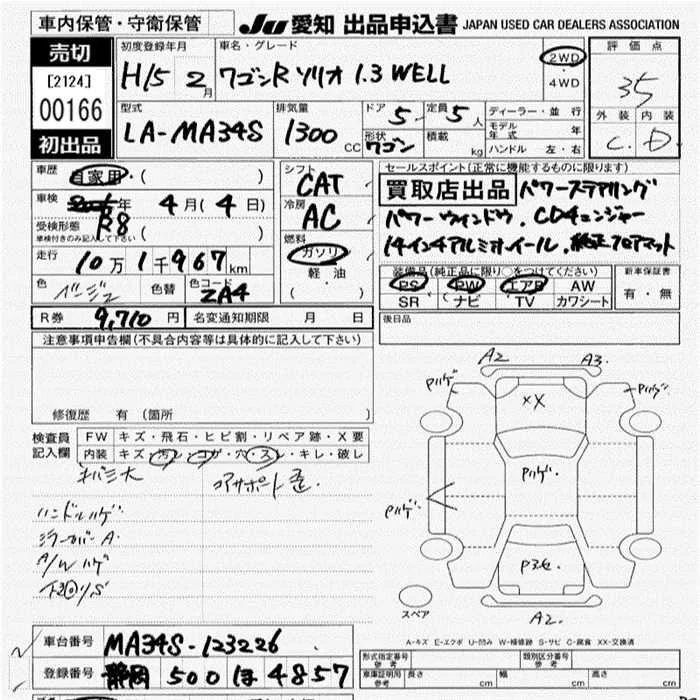 車内保管・守衛保管
JU 愛知 出品申込書 JAPAN USED CAR DEALERS ASSOCIATION
売切
[2124]
00166
初出品
初度登録年月
H15 2月
車名・グレード
ワゴンR ソリオ 1.3 WELL
2WD
・
4WD
評価点
35
外装 内装
C. D.
型式
LA-MA34S
排気量
1300 CC
ドア 5
定員 5人
形状 ワゴン
積載 kg
ディーラー・並行
モデル年式 年
ハンドル 左・右
車歴
自家用・( )
車検
年 4月(4日)
R8
受検形態
車検付きのみ記入して下さい
( )
走行
10万1千967km
色 ベージュ
色替
色コード
ZA4
シフト
CAT
冷房
AC
燃料
ガソリン
軽油
( )
セールスポイント(正常に機能するものに限ります)
買取店出品 パワーステアリング
パワーウインドウ. CDチェンジャー
14インチアルミホイール. 純正フロアマット
装備品(純正品に限り○をつけてください)
PS PW エアB AW
SR ナビ TV カワシート
新車保証書
有・無
R券 9,710円
名変通知期限 月 日
後日品
注意事項申告欄(不具合内容等は具体的に記入して下さい)
修復歴 有(箇所 )
検査員
記入欄
FW キズ・飛石・ヒビ割・リペア跡・X要
内装 キズ・汚レ・コゲ・穴・スレ・キレ・破レ
ハンドルハゲ
ミラーカバーA
A/Wハゲ
コアサポート歪.
A2 A3.
Pハゲ Pハゲ
XX
Pハゲ.
Pハゲ
A2.
スペア
A-キズ E-エクボ U-凹み W-補修跡 S-サビ C-腐食 XX-交換済
車台番号 MA34S-123226
登録番号 静岡 500 ほ 4857
形式指定番号 参考
類別区分番号 参考
車庫証明用 参考
長さ cm
幅 cm
高さ cm